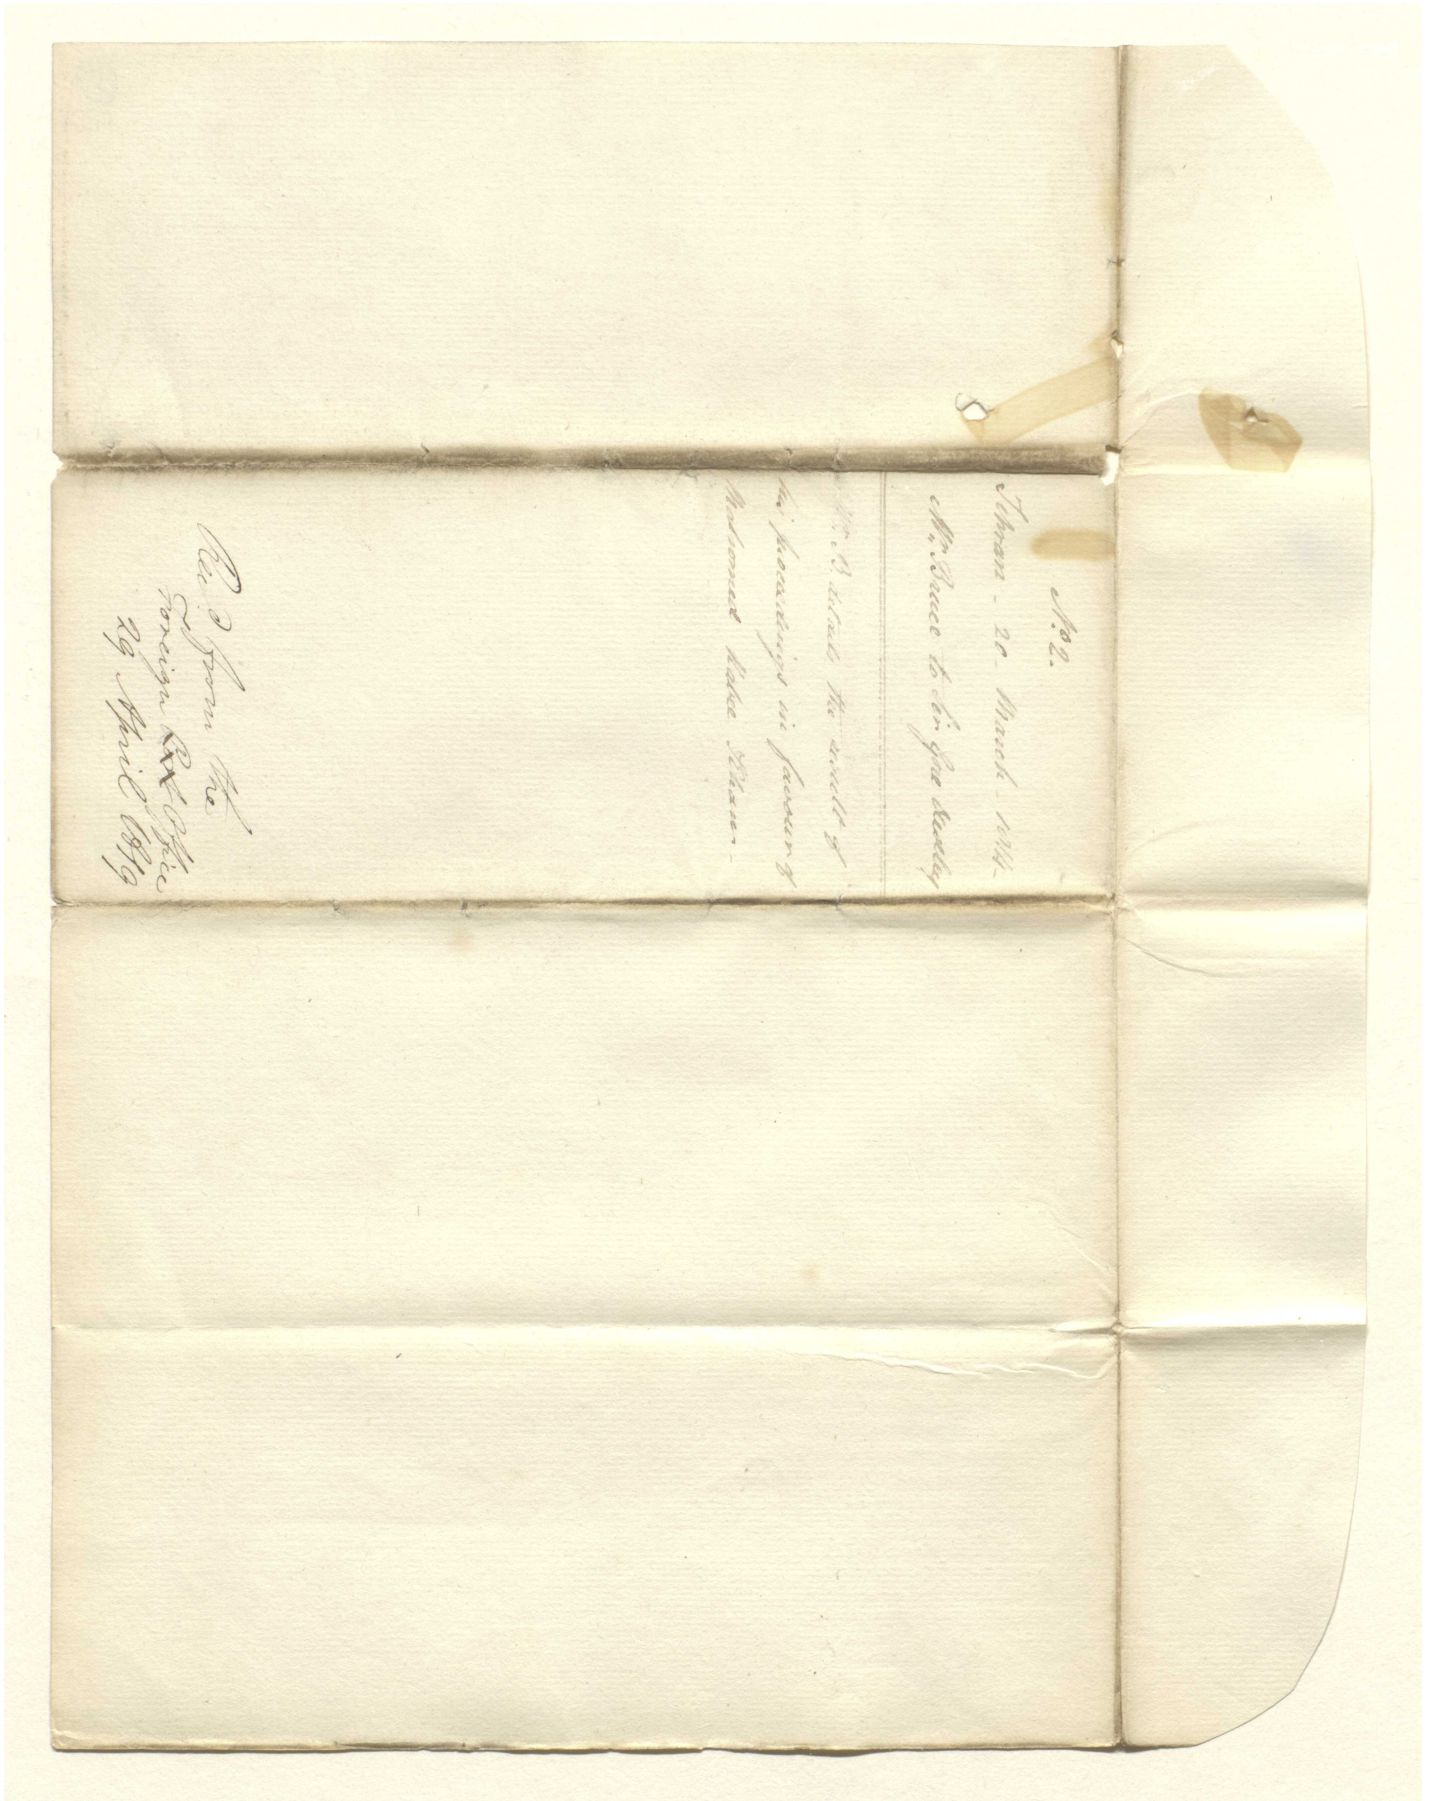 No. 2.
Tehran - 20 - March - 1814 -
Mr. Bruce to Sir Gore Ouseley
Mr. B details the result of
his proceedings in favour of
Mahomed Nabee Khan -
Rec'd from the
Foreign Office
29 April 1819